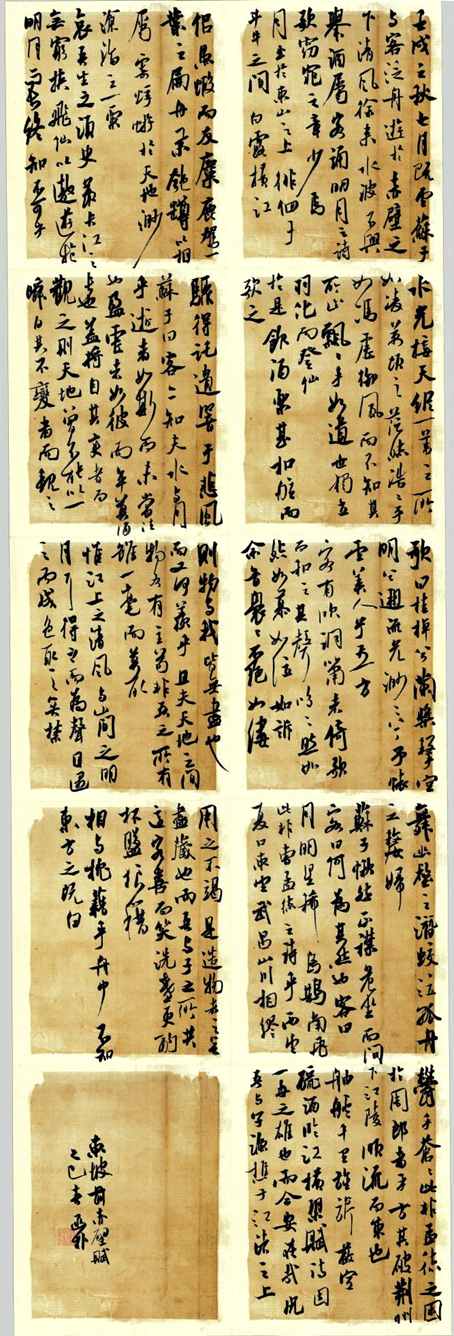 壬戌之秋七月既望蘇子
与客泛舟遊於赤壁之
下清風徐来水波不興
舉酒屬客誦明月之詩
歌窈窕之章少焉
月出於東山之上徘徊于
斗牛之間白露横江
水光接天縱一葦之所
如凌萬頃之茫然浩浩乎
如馮虛御風而不知其
所止飄飄乎如遺世獨立
羽化而登仙
於是飲酒樂甚扣舷而
歌之
歌曰桂棹兮蘭槳擊空
明兮遡流光渺渺兮予懷
望美人兮天一方
客有吹洞簫者倚歌
而和之其聲嗚嗚然如
怨如慕如泣如訴
余音嫋嫋不絶如縷
舞幽壑之潛蛟泣孤舟
之嫠婦
蘇子愀然正襟危坐而問
客曰何為其然也客曰
月明星稀烏鵲南飛
此非曹孟德之詩乎西望
夏口東望武昌山川相繆
鬱乎蒼蒼此非孟德之困
於周郎者乎方其破荆州
下江陵順流而東也
舳艫千里旌旗蔽空
釃酒臨江横槊賦詩固
一世之雄也而今安在哉況
吾与子漁樵于江渚之上
侣魚蝦而友麋鹿駕一
葉之扁舟舉匏樽以相
屬寄蜉蝣於天地渺
滄海之一粟
哀吾生之須臾羨長江之
無窮挾飛仙以遨遊抱
明月而長終知不可乎
驟得託遺響于悲風
蘇子曰客亦知夫水與月
乎逝者如斯而未嘗往
也盈虚者如彼而卒莫消
長也蓋將自其變者而
觀之則天地曾不能以一
瞬自其不變者而觀之
則物与我皆無盡也
而又何羨乎且夫天地之間
物各有主苟非吾之所有
雖一毫而莫取
惟江上之清風与山間之明
月耳得之而為聲目遇
之而成色取之無禁
用之不竭是造物者之無
盡藏也而吾与子之所共
適客喜而笑洗盞更酌
杯盤狼藉
相与枕藉乎舟中不知
東方之既白
東坡前赤壁賦
乙巳春